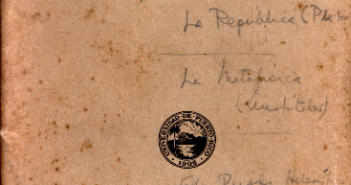 La República (Platón
La Metafísica
(Aristóteles)
UNIVERSIDAD DE PUERTO RICO
1903